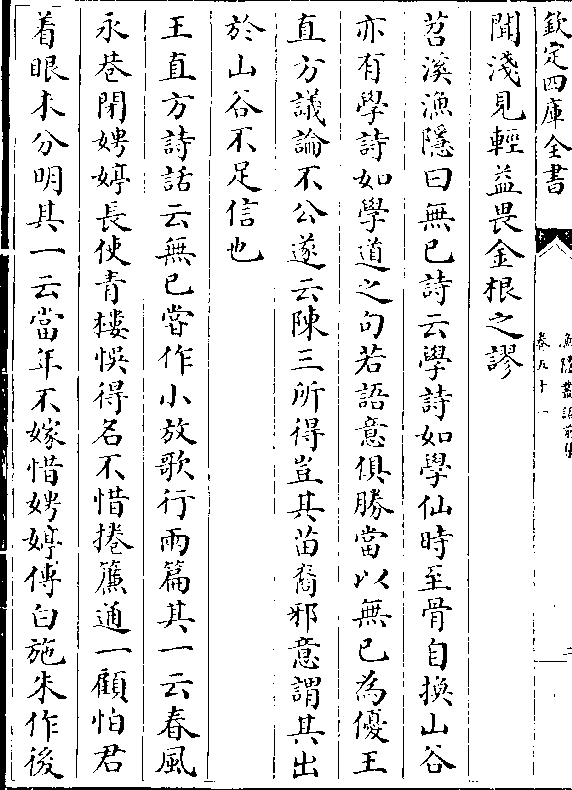 欽定四庫全書
卷五十一
聞淺見輕益畏金根之謬
苕溪漁隱曰無已詩云學詩如學仙時至骨自換山谷
亦有學詩如學道之句若語意俱勝當以無已為優王
直方議論不公遂云陳三所得豈其苗裔邪意謂其出
於山谷不足信也
王直方詩話云無已嘗作小放歌行兩篇其一云春風
永巷閉娉婷長使青樓悞得名不惜捲簾通一顧怕君
着眼未分明其一云當年不嫁惜娉婷傅白施朱作後